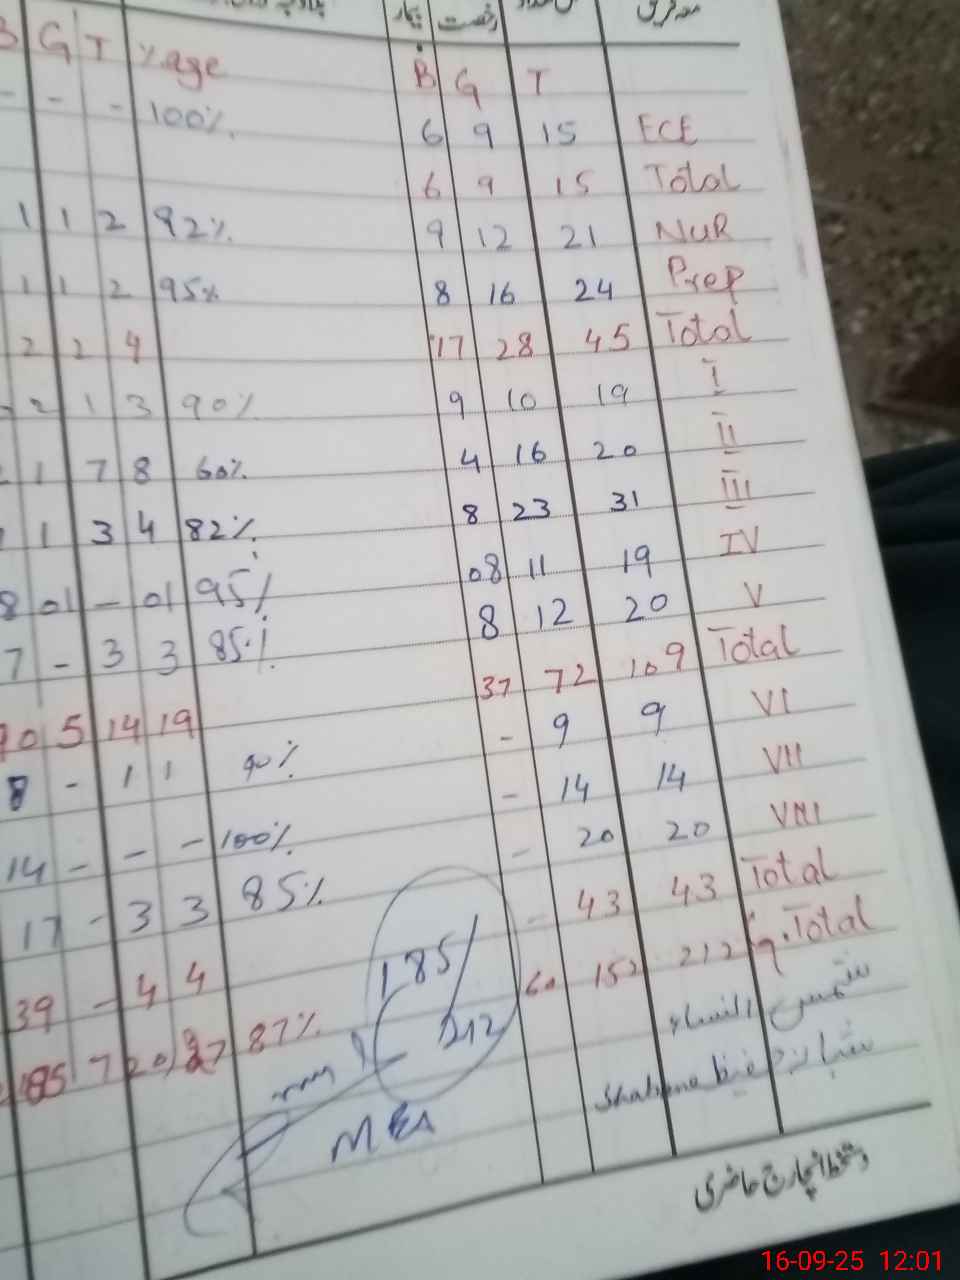 B G T %age B G T
- - - 100% 6 9 15 ECE
6 9 15 Total
1 1 2 92% 9 12 21 NUR
1 1 2 95% 8 16 24 Prep
2 2 4 17 28 45 Total
2 1 3 90% 9 10 19 I
1 7 8 60% 4 16 20 II
1 3 4 82% 8 23 31 III
8 01 - 01 95% 08 11 19 IV
7 - 3 3 85% 8 12 20 V
90 5 14 19 37 72 109 Total
8 - 1 1 90% - 9 9 VI
14 - - - 100% - 14 14 VII
17 - 3 3 85% - 20 20 VIII
39 - 4 4 - 43 43 Total
185 7 20 27 87% 60 152 212 g.Total
185/212
شمس النساء
MEA
دستخط انچارج حاضری
16-09-25 12:01